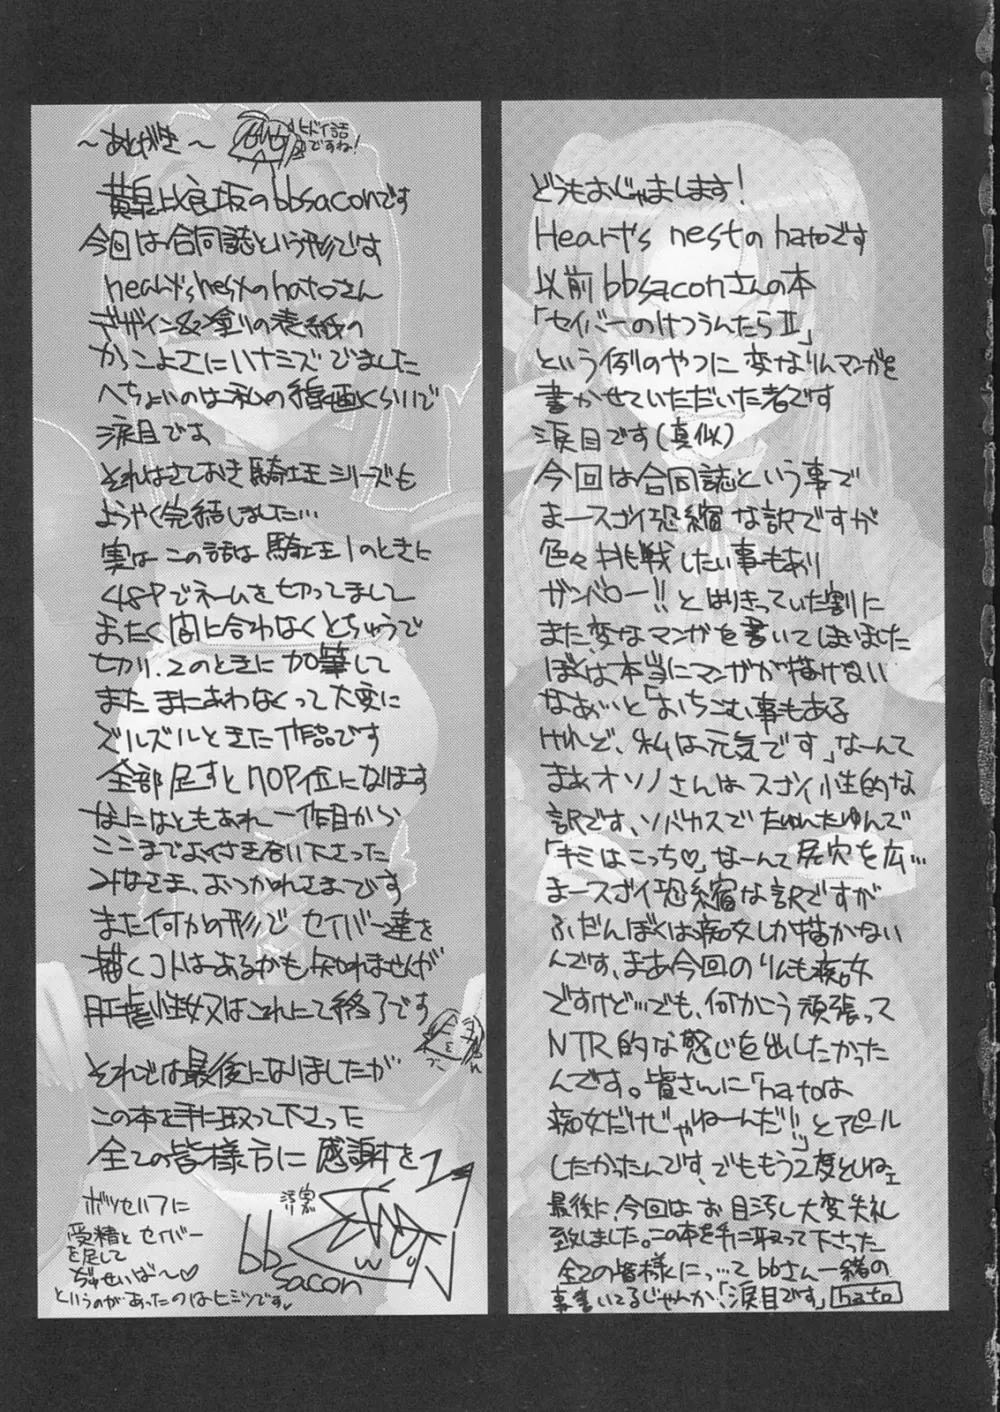 ～あとがき～
ヒドイ話
ですね!
黄泉比良坂のbbsaconです
今回は合同誌という形です
heart's nestのhatoさん
デザイン&塗りの表紙の
かっこよさにハナミズでました
へちょいのは私の線画くらいで
涙目です
それはさておき騎士王シリーズも
ようやく完結しました…
実はこの話は騎士王1のときに
48Pでネームを切ってまして
まったく間に合わなくとちゅうで
切り、2のときに加筆して
またまにあわなくって大変に
ズルズルときた作品です
全部足すと70P位になります
なにはともあれ一作目から
ここまでよくつき合い下さった
みなさま、おつかれさまです
また何かの形でセイバー達を
描くコトはあるかも知れませんが
肛虐性奴はこれにて終了です
それでは最後になりましたが
この本を手に取って下さった
全ての皆様方に感謝を
bb
sacon
ボツセルフに
受精とセイバー
を足して
ぢゅせいば～♡
というのがあったのはヒミツです
どうもおじゃまします!
Heart's nestのhatoです
以前bbsaconさんの本
「セイバーのけつうんたらⅡ」
という例のやつに変なりんマンガを
書かせていただいた者です
涙目です(真似)
今回は合同誌という事で
まースゴイ恐縮な訳ですが
色々挑戦したい事もあり
ガンバロー!!とはりきっていた割に
また変なマンガを書いてしまいました
ぼくは本当にマンガが描けない
なぁいと「おちこむ事もある
けれど、私は元気です」なーんて
まぁオソノさんはスゴイ性的な
訳です、ソバカスでたゆんたゆんで
「キミはこっち♡」なーんて尻穴を広…
まースゴイ恐縮な訳ですが
ふだんぼくは痴女しか描かない
んです、まあ今回のりんも痴女
ですけど…でも、何かこう頑張って
NTR的な感じを出したかった
んです。皆さんに「hatoは
痴女だけじゃねーんだ!!」とアピール
したかったんです、でももう2度としねェ
最後に、今回はお目汚し大変失礼
致しました。この本を手に取って下さった
全ての皆様にっ…てbbさん一緒の
事書いてるじゃんか、「涙目です」hato